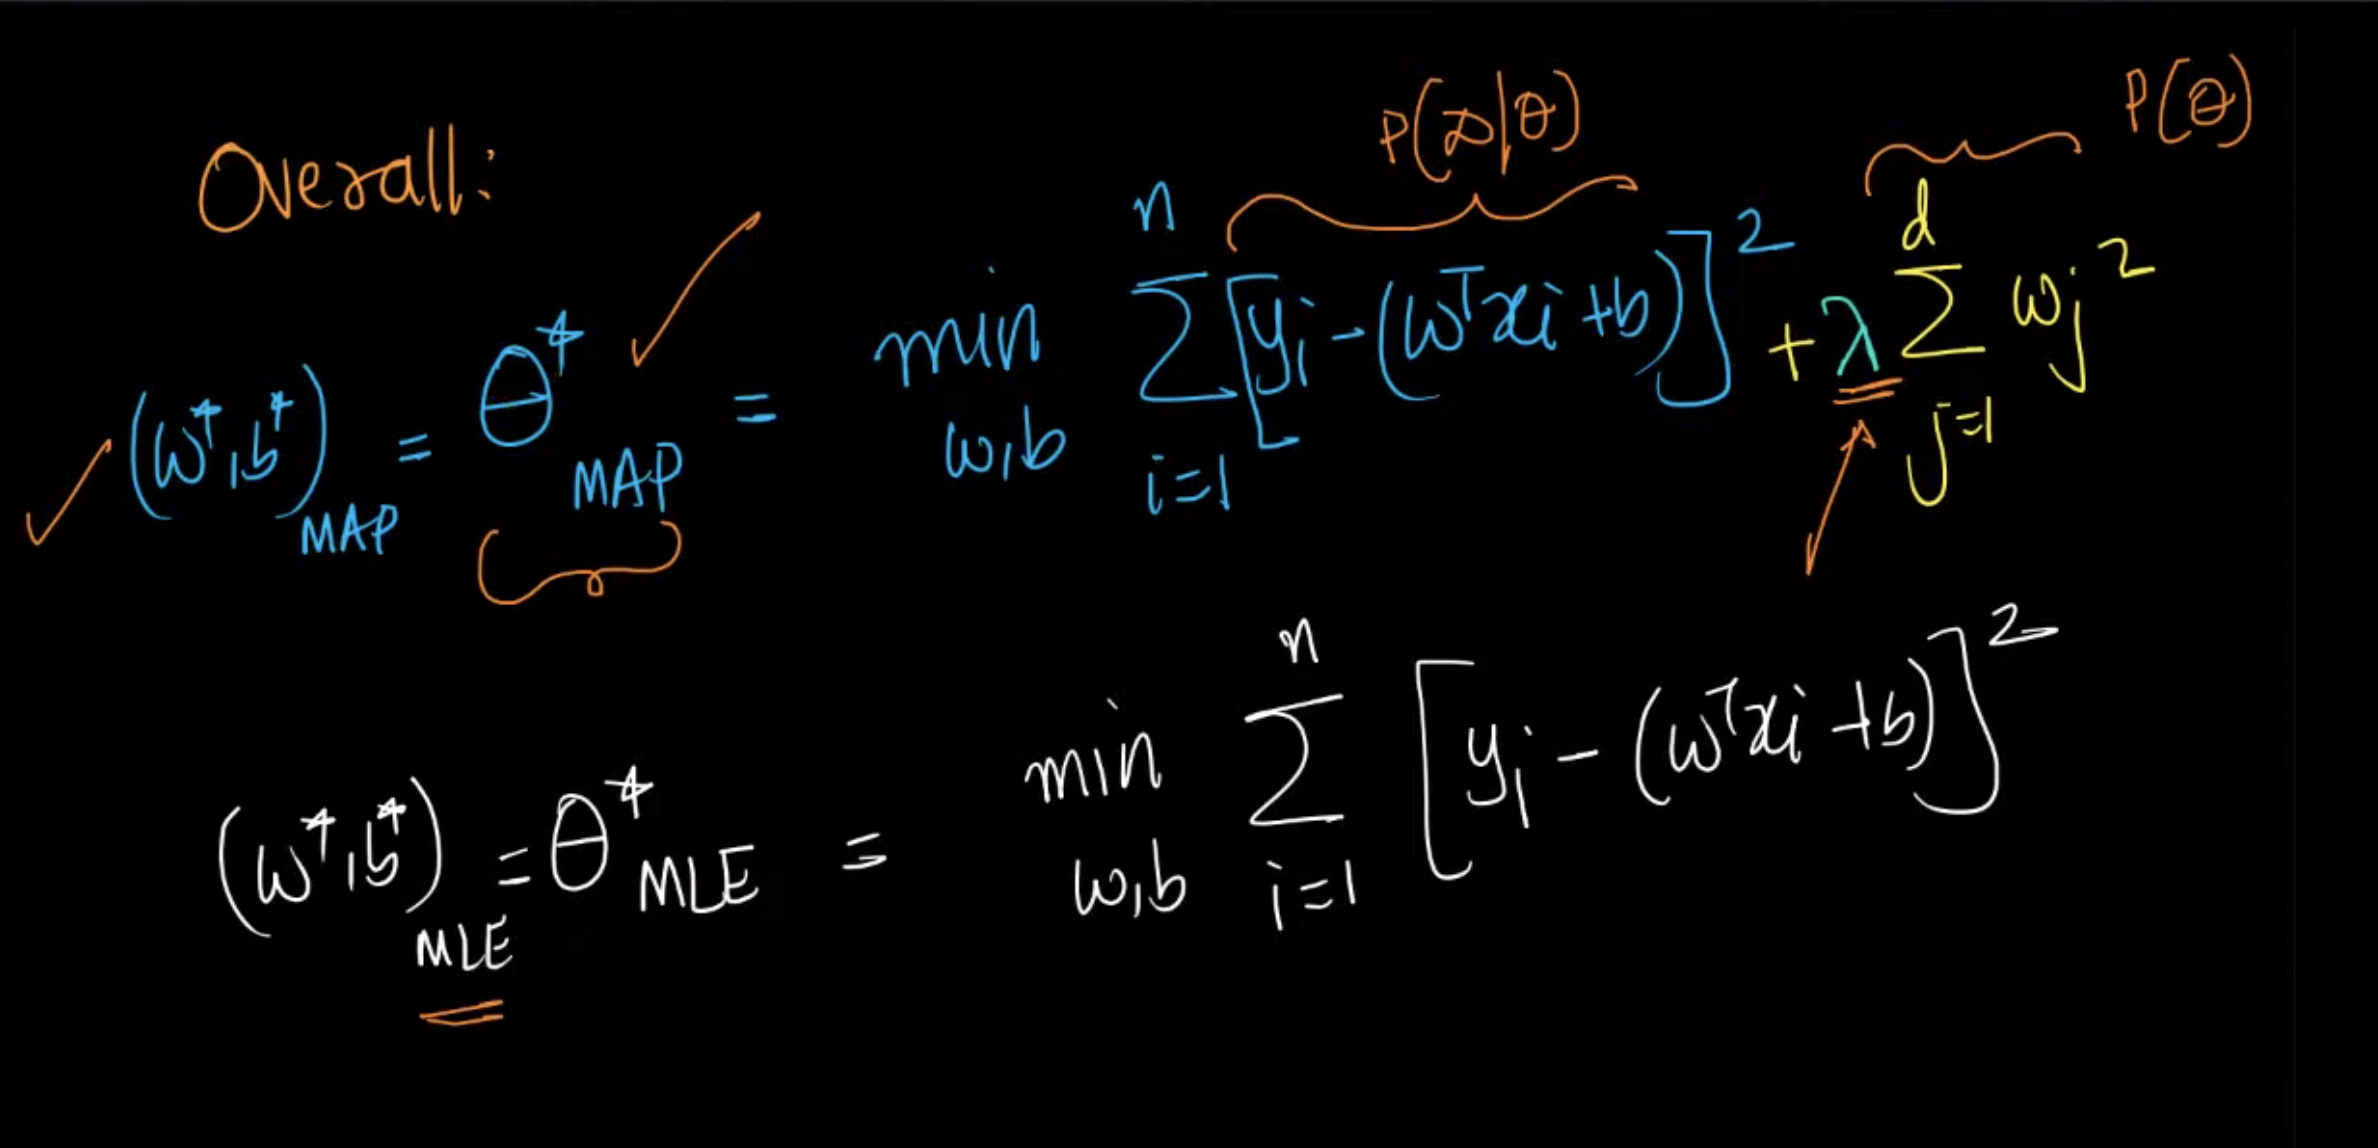 Overall:
P(D|θ) P(θ)
(w*,b*)MAP = θ*MAP = min w,b n Σ i=1 [yi - (wᵀxi + b)]² + λ d Σ j=1 wj²
(w*,b*)MLE = θ*MLE = min w,b n Σ i=1 [yi - (wᵀxi + b)]²